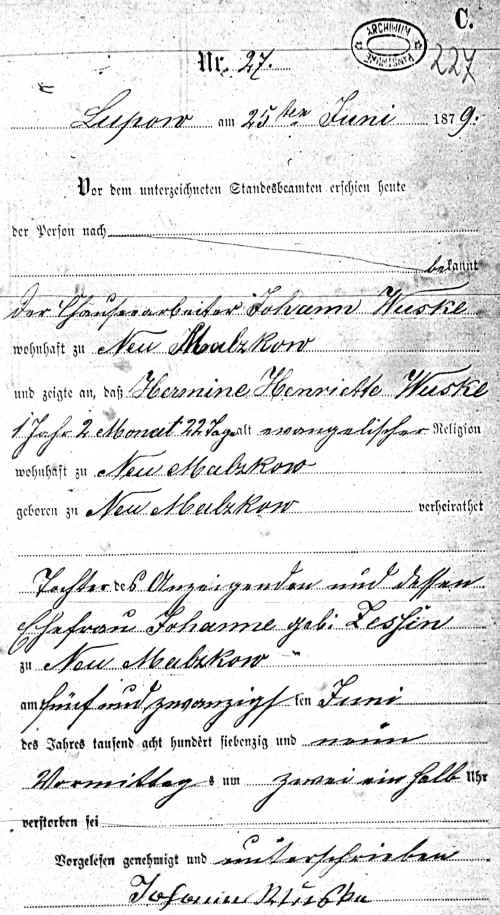 C.
ARCHIWUM
Nr. 27.
227
Lupow am 25 ten Juni 1879.
Vor dem unterzeichneten Standesbeamten erschien heute
der Person nach
bekannt
Der Chausseearbeiter Johann Wuske
wohnhaft zu Neu Malzkow
und zeigte an, daß Hermine Henriette Wuske
1 Jahr 2 Monat 22 Tage alt evangelischer Religion
wohnhaft zu Neu Malzkow
geboren zu Neu Malzkow verheirathet
Tochter des Anzeigenden und dessen
Ehefrau Johanne geb: Zessin
zu Neu Malzkow
am fünf und zwanzigsten Juni
des Jahres tausend acht hundert siebenzig und neun
Vormittags um zwei ein halb Uhr
verstorben sei
Vorgelesen genehmigt und unterschrieben
Johann Wuske